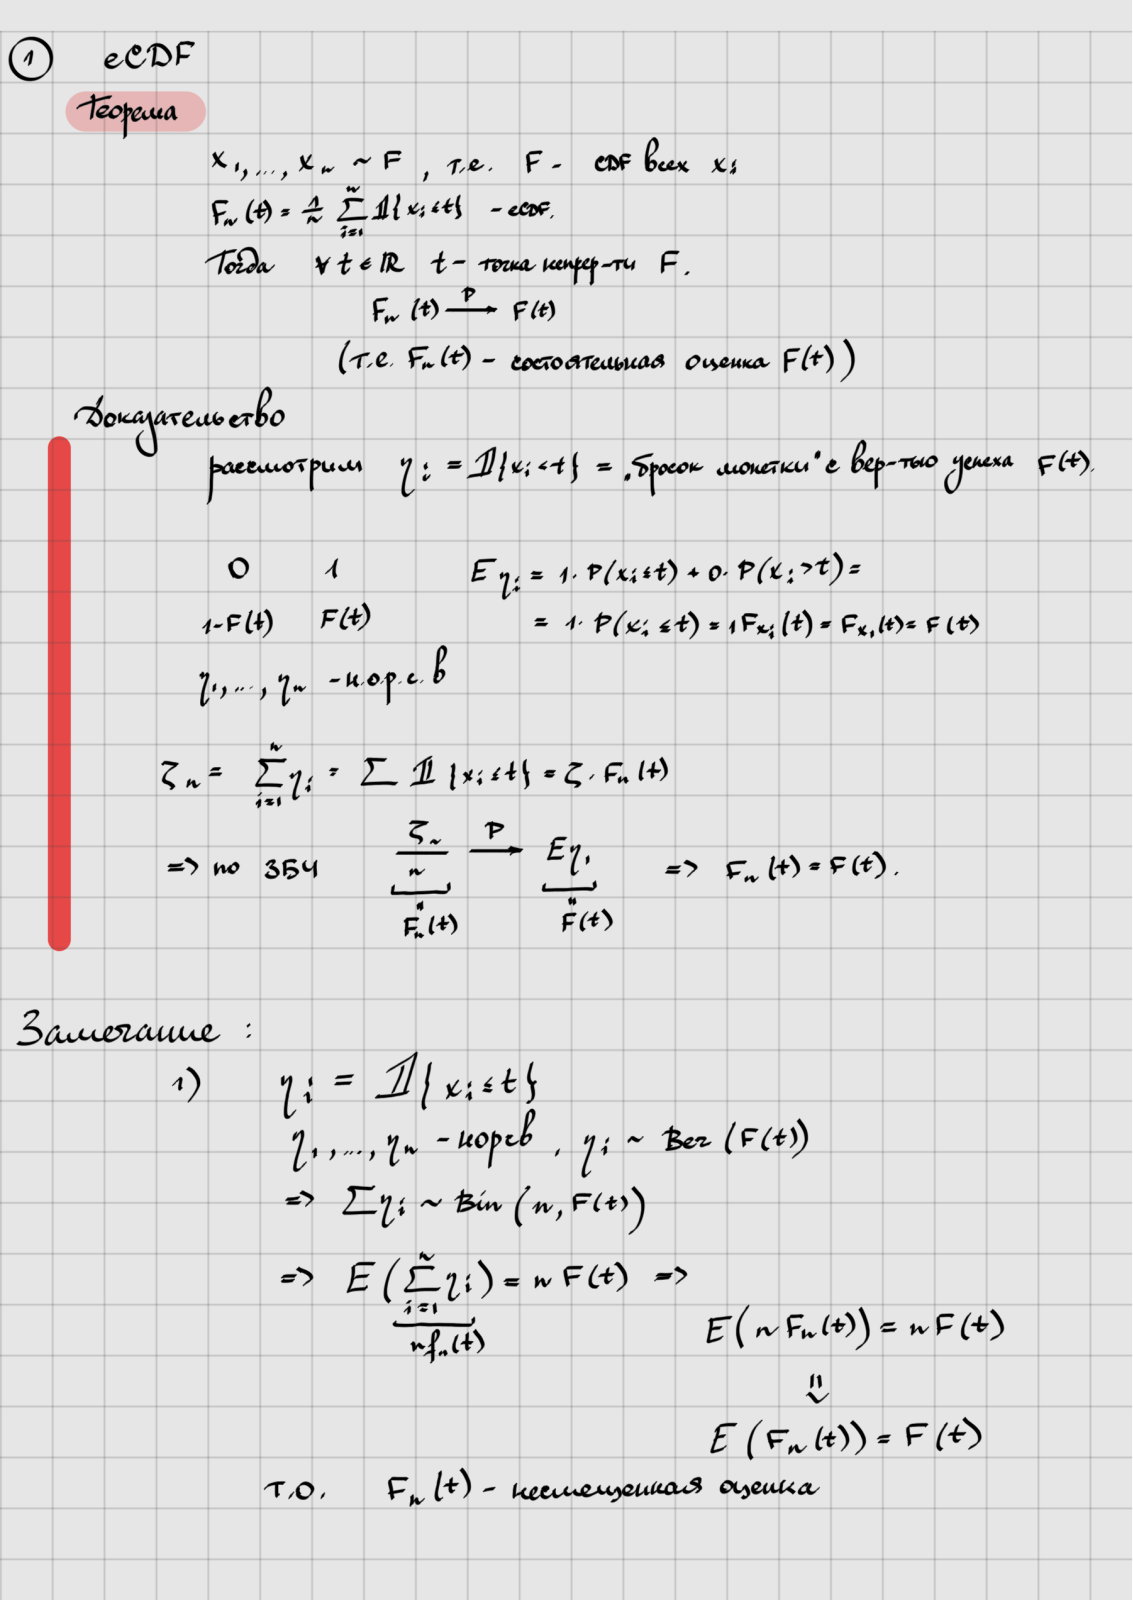 1 eCDF
Теорема
x₁,..., xₙ ~ F , т.е. F - CDF всех xᵢ
Fₙ(t) = 1/n ∑ᵢ₌₁ⁿ 𝟙{xᵢ ≤ t} - eCDF.
Тогда ∀ t ∈ ℝ t - точка непрер-ти F.
Fₙ(t) →ᴾ F(t)
(т.е. Fₙ(t) - состоятельная оценка F(t))
Доказательство
рассмотрим ηᵢ = 𝟙{xᵢ < t} = „бросок монетки" с вер-тью успеха F(t).
0 1 Eηᵢ = 1· P(xᵢ ≤ t) + 0· P(xᵢ > t) =
1-F(t) F(t) = 1· P(xᵢ ≤ t) = 1F_{xᵢ}(t) = F_{x₁}(t) = F(t)
η₁,..., ηₙ - н.о.р.с.в
ζₙ = ∑ᵢ₌₁ⁿ ηᵢ = ∑ 𝟙{xᵢ ≤ t} = ζ · Fₙ(t)
=> по ЗБЧ ζₙ/n →ᴾ Eη₁ => Fₙ(t) = F(t).
" "
Fₙ(t) F(t)
Замечание :
1) ηᵢ = 𝟙{xᵢ ≤ t}
η₁,..., ηₙ - норсв , ηᵢ ~ Ber (F(t))
=> ∑ηᵢ ~ Bin (n, F(t))
=> E(∑ᵢ₌₁ⁿ ηᵢ) = n F(t) =>
nfₙ(t)
E(n Fₙ(t)) = n F(t)
⇓
E(Fₙ(t)) = F(t)
Т.О. Fₙ(t) - несмещенная оценка